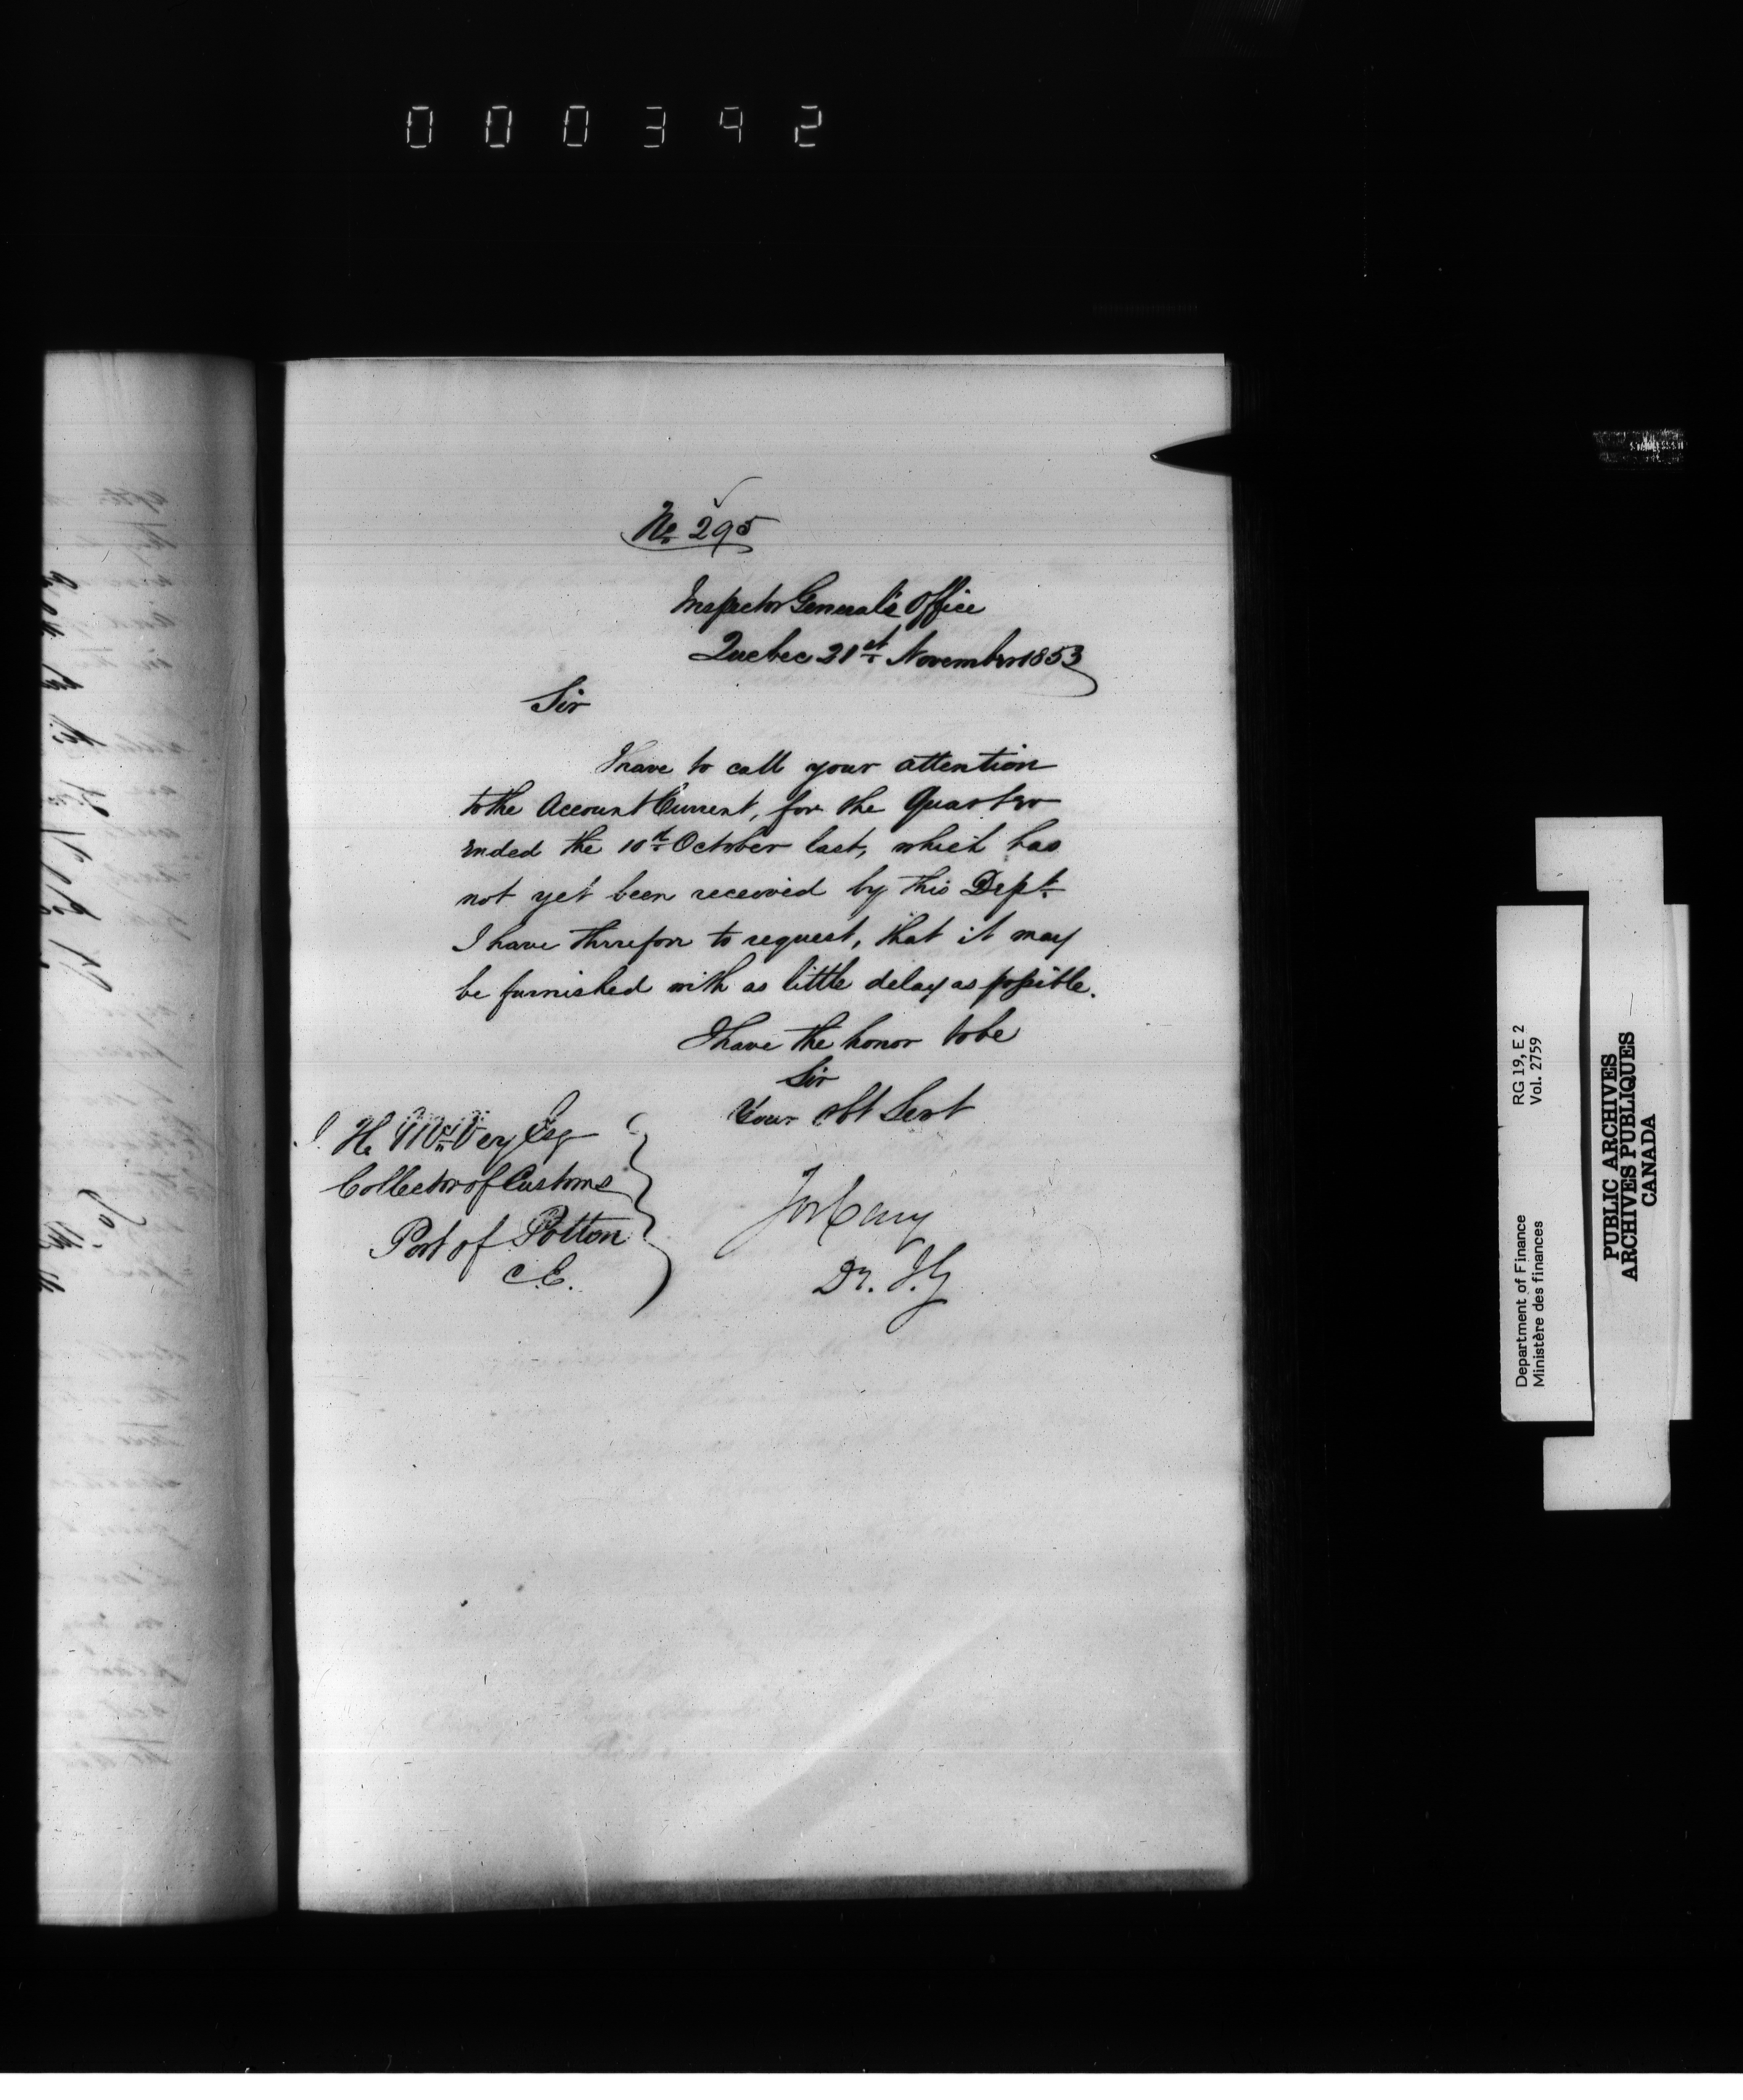 000392
No 295
Inspector General's Office
Quebec 21st November 1853
Sir
I have to call your attention
to the Account Current, for the Quarter
ended the 10th October last, which has
not yet been received by this Dept.
I have therefore to request, that it may
be furnished with as little delay as possible.
I have the honor to be
Sir
Your Obt Servt
H. Esq
Collector of Customs
Port of Potton
C.E.
Jos Cary
D. I. G
Department of Finance RG 19, E 2
Ministère des finances Vol. 2759
PUBLIC ARCHIVES
ARCHIVES PUBLIQUES
CANADA